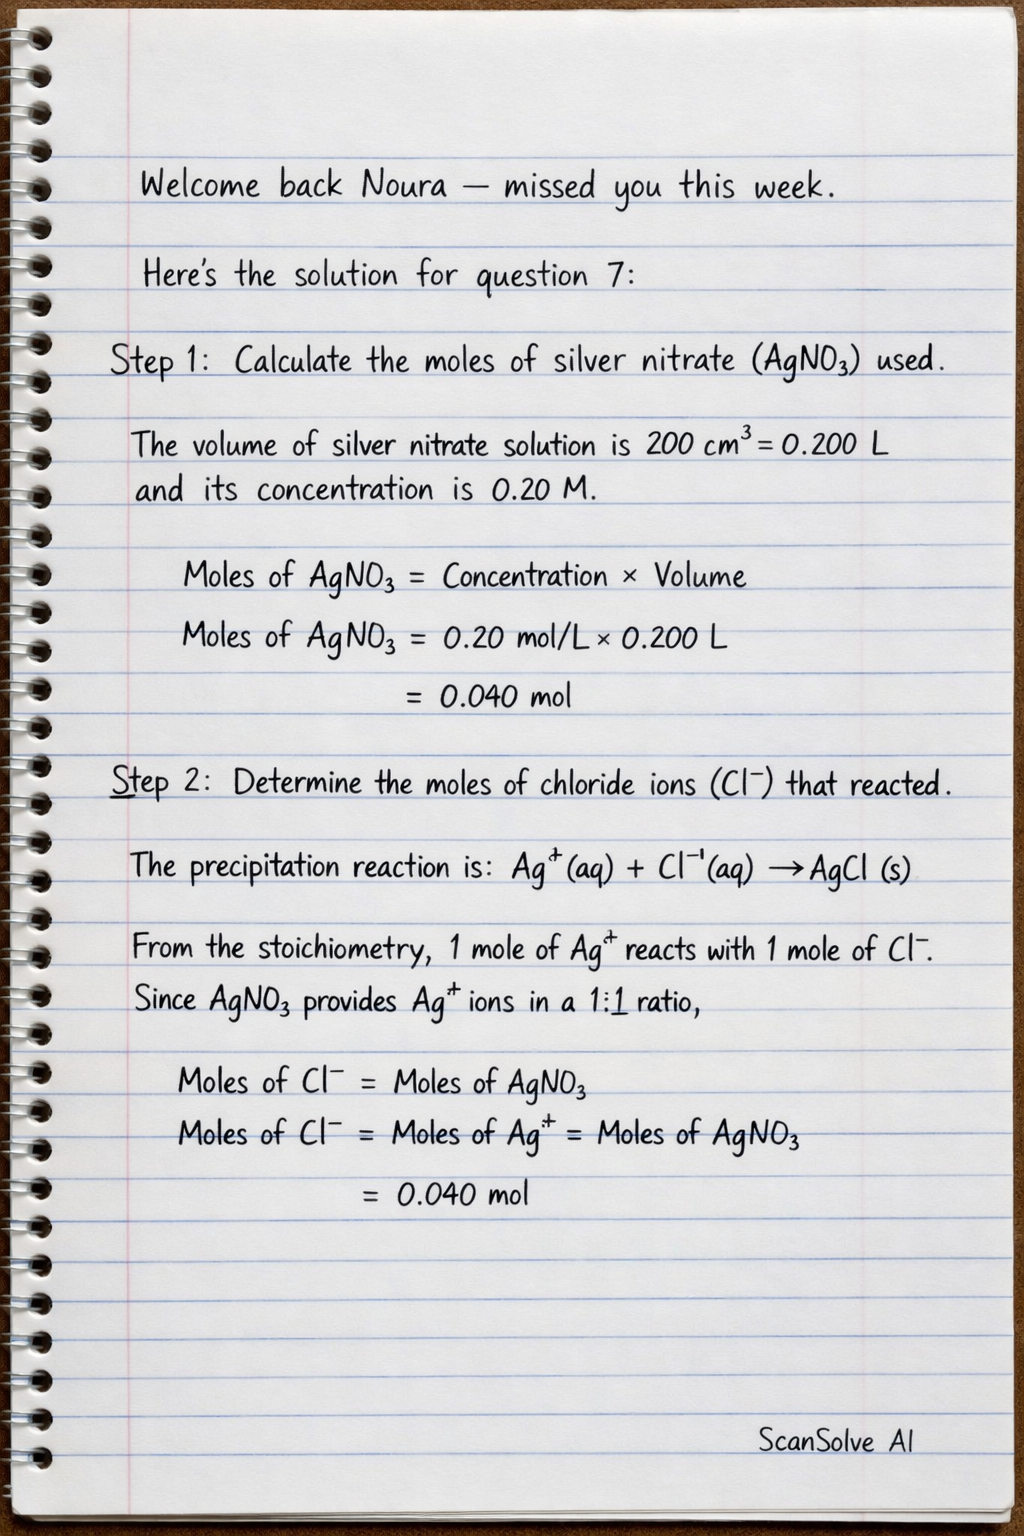 Welcome back Noura — missed you this week.
Here's the solution for question 7:
Step 1: Calculate the moles of silver nitrate (AgNO₃) used.
The volume of silver nitrate solution is 200 cm³ = 0.200 L
and its concentration is 0.20 M.
Moles of AgNO₃ = Concentration × Volume
Moles of AgNO₃ = 0.20 mol/L × 0.200 L
= 0.040 mol
Step 2: Determine the moles of chloride ions (Cl⁻) that reacted.
The precipitation reaction is: Ag⁺(aq) + Cl⁻'(aq) → AgCl (s)
From the stoichiometry, 1 mole of Ag⁺ reacts with 1 mole of Cl⁻.
Since AgNO₃ provides Ag⁺ ions in a 1:1 ratio,
Moles of Cl⁻ = Moles of AgNO₃
Moles of Cl⁻ = Moles of Ag⁺ = Moles of AgNO₃
= 0.040 mol
ScanSolve AI